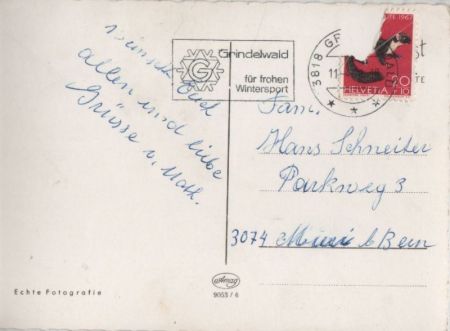 wünsche Euch
allen und liebe
Grüsse v. Math.
Grindelwald
G
für frohen
Wintersport
3818 GR
11
1967
20
+10
HELVETIA
Fam.
Hans Schneiter
Parkweg 3
3074 Muri b/Bern
Echte Fotografie
9053/6